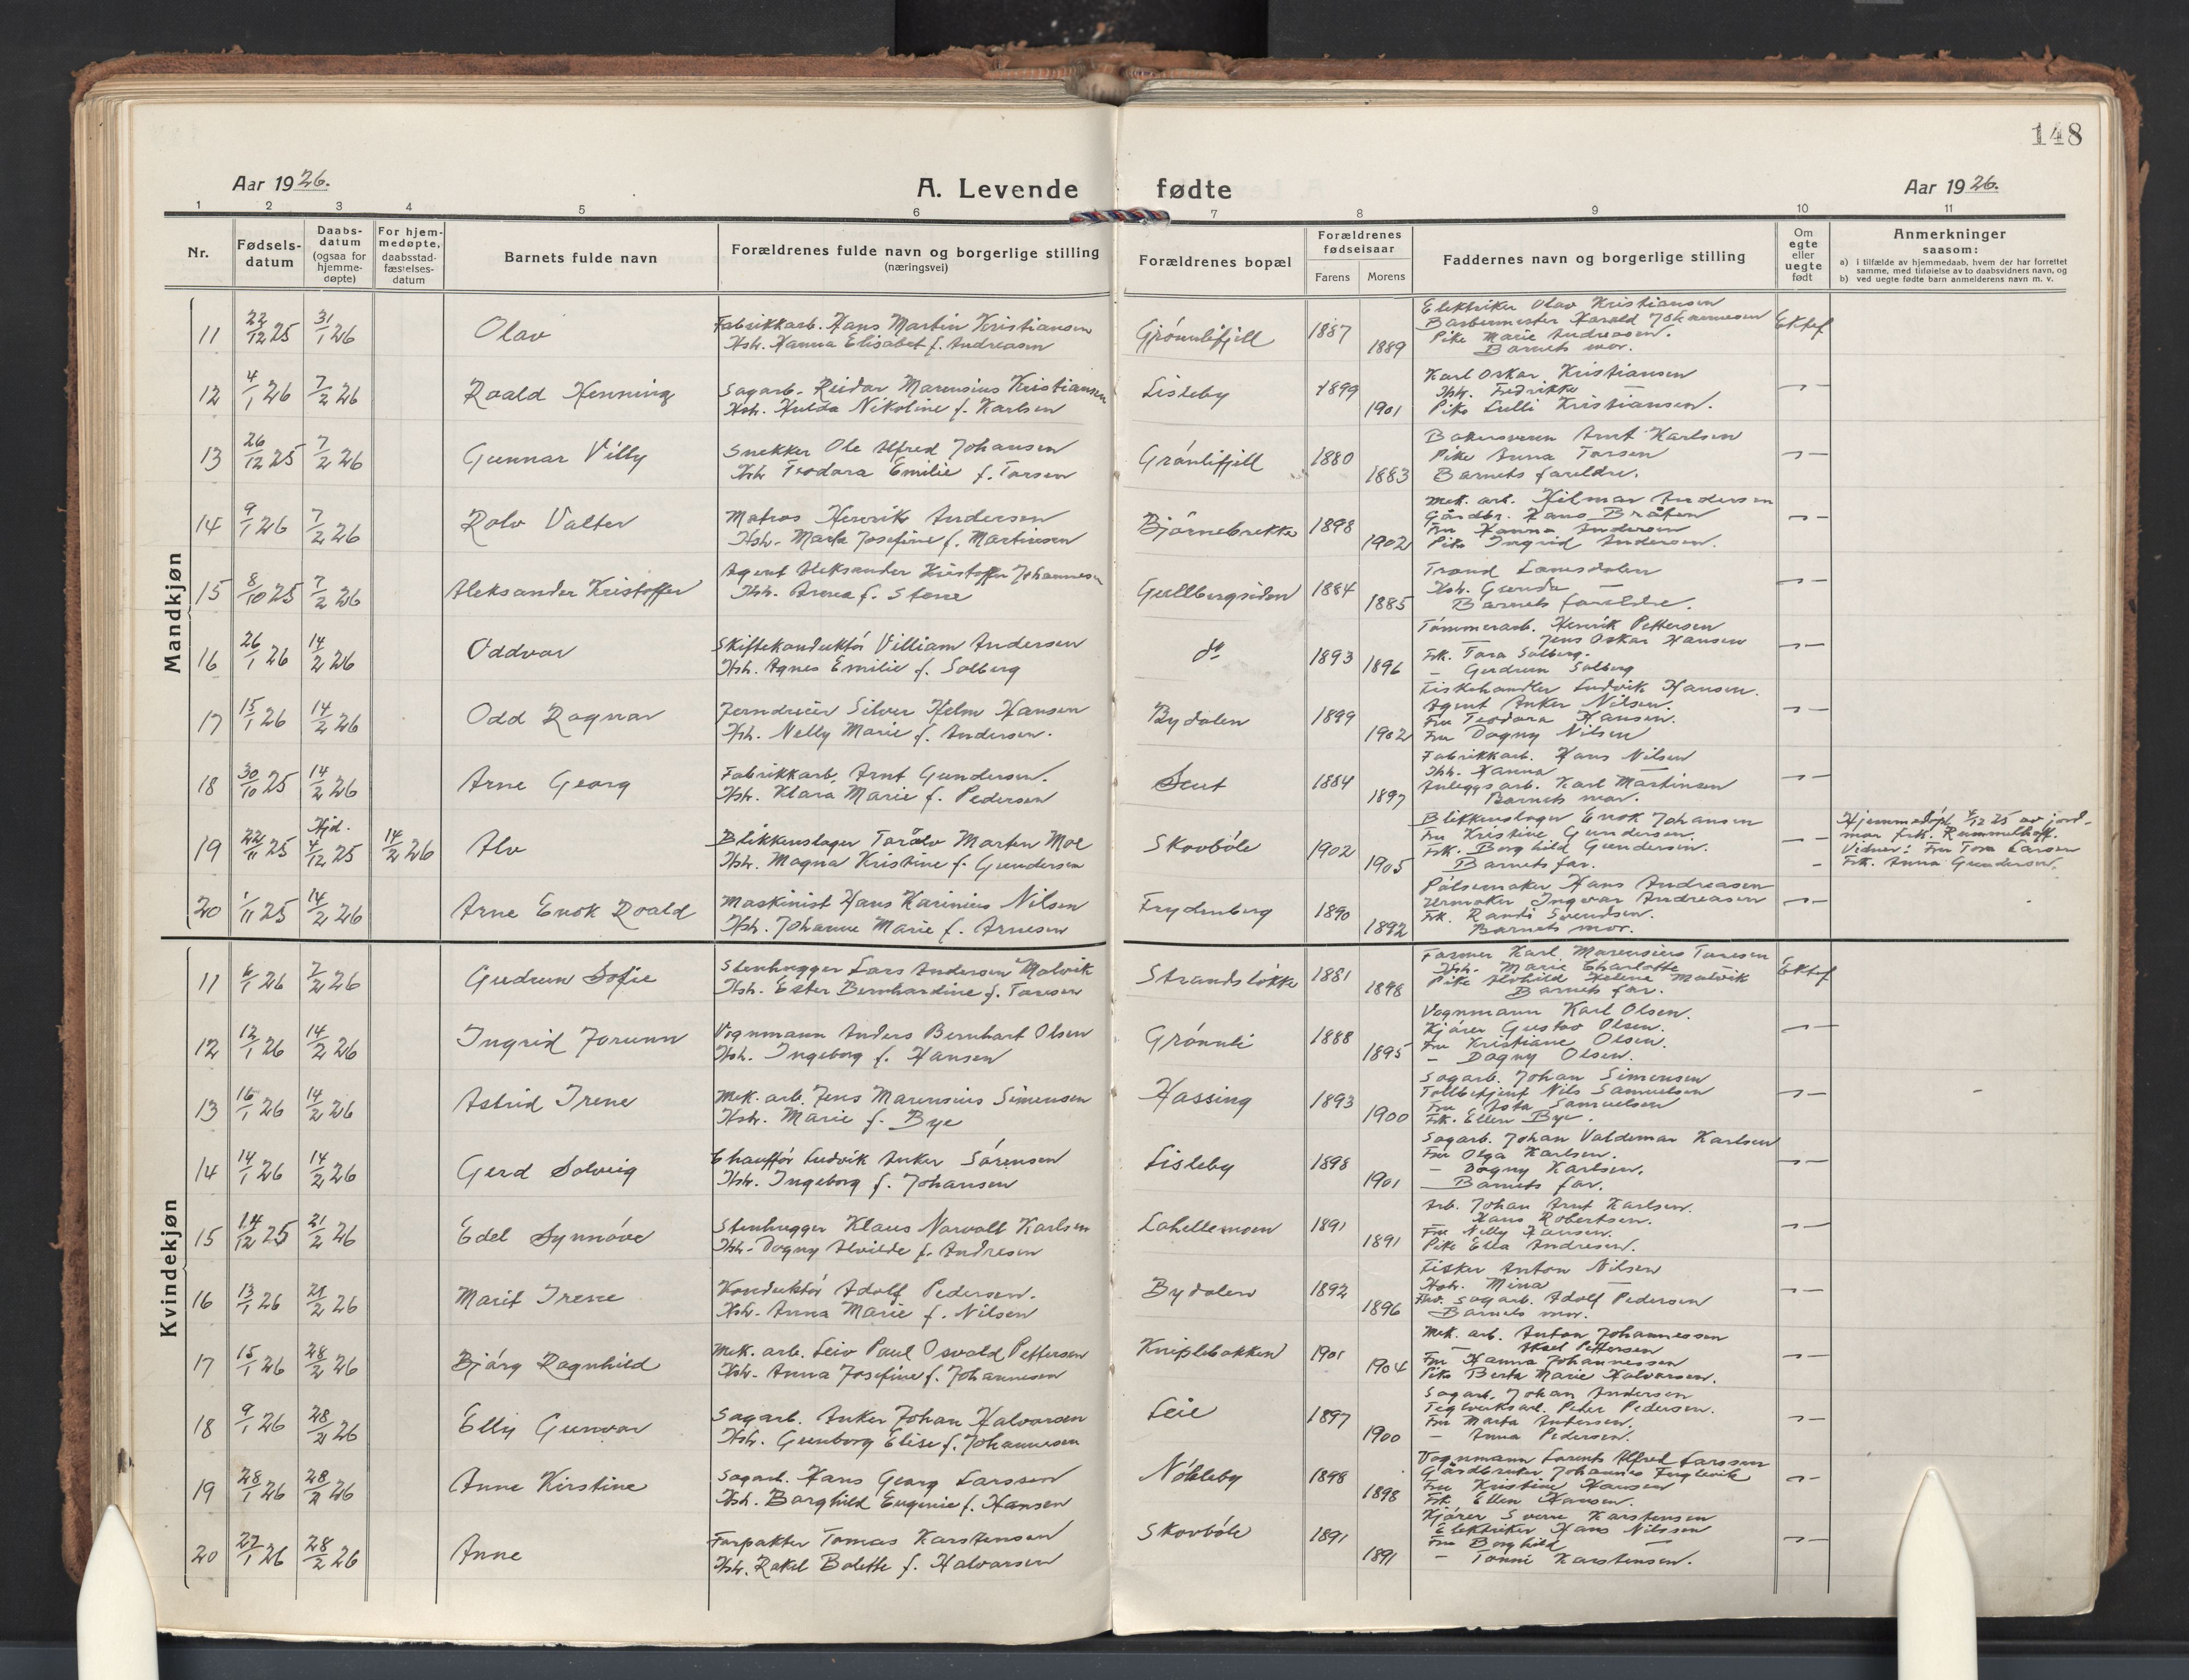 148
Aar 1926.
A. Levende fødte
Aar 1926.
1 2 3 4 5 6 7 8 9 10 11
Nr.
Fødsels-
datum
Daabs-
datum
(ogsaa for
hjemme-
døpte)
For hjem-
medøpte,
daabsstad-
fæstelses-
datum
Barnets fulde navn
Forældrenes fulde navn og borgerlige stilling
(næringsvei)
Forældrenes bopæl
Forældrenes
fødselsaar
Farens Morens
Faddernes navn og borgerlige stilling
Om
egte
eller
uegte
født
Anmerkninger
saasom:
a) i tilfælde av hjemmedaab, hvem der har forrettet
samme, med tilføielse av to daabsvidners navn, og
b) ved uegte fødte barn anmelderens navn m. v.
Mandkjøn
11 22/12 25 31/1 26 Olav
Fabrikkarb. Hans Martin Kristiansen
Hstr. Hanna Elisabet f. Andreasen
Grönnlifjell 1887 1889
Elektriker Olav Kristiansen
Barbermester Harald Johannesen
Pike Marie Andreasen.
Barnets mor.
Ektef
12 4/1 26 7/2 26 Roald Henning
Sagarb. Reidar Marensius Kristiansen
Hstr. Hulda Nikoline f. Karlsen
Lisleby 1899 1901
Karl Oskar Kristiansen
Hstr. Fredrikke —
Pike Lulli Kristiansen.
13 26/12 25 7/2 26 Gunnar Villy
Snekker Ole Alfred Johansen
Hstr Teodora Emilie f. Torsen
Grönlifjell 1880 1883
Bakersvenn Arnt Karlsen
Pike Anna Torsen
Barnets foreldre.
14 9/1 26 7/2 26 Rolv Valter
Matros Henrik Andersen
Hstr. Marta Josefine f. Martinsen
Björnebrekke 1898 1902
Mek. arb. Hilmar Andersen
Gårdbr. Hans Bråten
Fru Hanna Andersen
Pike Ingrid Andersen.
15 8/10 25 7/2 26 Aleksander Kristoffer
Agent Aleksander Kristoffer Johannesen
Hstr. Anna f. Stene
Gullbergsiden 1884 1885
Trond Lonesdalen
Hstr. Gunda —
Barnets foreldre.
16 26/1 26 14/2 26 Oddvar
Skiftekonduktör Villiam Andersen
Hstr. Agnes Emilie f. Solberg
do 1893 1896
Tömmerarb. Henrik Pettersen
— Jens Oskar Hansen
Frk. Tora Solberg.
— Gudrun Solberg
17 15/1 26 14/2 26 Odd Ragnar
Jerndreier Silver Helm Hansen
Hstr. Nelly Marie f. Andersen.
Bydalen 1899 1902
Fiskehandler Ludvik Hansen.
Agent Anker Nilsen.
Fru Teodora Hansen.
Fru Dagny Nilsen
18 30/10 25 14/2 26 Arne Georg
Fabrikkarb. Arnt Gundersen.
Hstr. Klara Marie f. Pedersen
Sent 1884 1897
Fabrikkarb. Hans Nilsen
Hstr. Hanna —
Anleggsarb. Karl Martinsen
Barnets mor.
19 22/11 25 Hjd. 4/12 25 14/2 26 Alv
Blikkenslager Torålv Morten Moe
Hstr. Magna Kristine f. Gundersen
Skovböle 1902 1905
Blikkenslager Enok Johansen
Fru Kristine Gundersen.
Frk. Borghild Gundersen.
Barnets far.
Hjemmedöpt 4/12 25 av jord-
mor frk. Rummelhoff.
Vidner: Fru Tora Larsen
Frk. Anna Gundersen.
20 1/11 25 14/2 26 Arne Enok Roald
Maskinist Hans Karinius Nilsen
Hstr. Johanne Marie f. Arnesen
Frydenberg 1890 1892
Pölsemaker Hans Andreasen
Urmaker Ingvar Andreasen
Frk. Randi Svendsen.
Barnets mor.
Kvindekjøn
11 6/1 26 7/2 26 Gudrun Sofie
Stenhugger Lars Andersen Malvik
Hstr. Ester Bernhardine f. Toresen
Strandslökke 1881 1898
Farmer Karl Marensius Toresen
Hstr. Marie Charlotte —
Pike Alvhild Helene Malvik
Barnets far.
Ektef
12 12/1 26 14/2 26 Ingrid Jorunn
Vognmann Anders Bernhart Olsen
Hstr. Ingeborg f. Hansen
Grönnli 1888 1895
Vognmann Karl Olsen.
Kjörer Gustav Olsen.
Fru Kristiane Olsen.
— Dagny Olsen.
13 16/1 26 14/2 26 Astrid Irene
Mek. arb. Jens Marensius Simensen
Hstr. Marie f. Bye
Hassing 1893 1900
Sagarb. Johan Simensen
Tollbetjent Nils Samuelsen
Fru Asta Samuelsen
Frk. Ellen Bye.
14 14/1 26 14/2 26 Gerd Solveig
Chauffør Ludvik Anker Sörensen
Hstr. Ingeborg f. Johansen
Lisleby 1898 1901
Sagarb. Johan Valdemar Karlsen
Fru Olga Karlsen.
— Dagny Karlsen.
Barnets far.
15 14/12 25 21/2 26 Edel Synnöve
Stenhugger Klaus Norvall Karlsen
Hstr. Dagny Alvilde f. Andresen
Lahellemoen 1891 1891
Arb. Johan Arnt Karlsen.
Hans Robertsen.
Fru Nelly Hansen.
Pike Ella Andresen.
16 13/1 26 21/2 26 Marit Irene
Konduktör Adolf Pedersen.
Hstr. Anna Marie f. Nilsen
Bydalen 1892 1896
Fisker Anton Nilsen
Hstr. Mina —
Fhv. Sagarb. Adolf Pedersen
Barnets mor.
17 15/1 26 28/2 26 Bjärg Ragnhild
Mek. arb. Leiv Paul Osvald Pettersen
Hstr. Anna Josefine f. Johannesen
Kniplebakken 1901 1904
Mek. arb. Anton Johannessen
— Aksel Pettersen
Fru Hanna Johannessen
Pike Berta Marie Halvorsen.
18 9/1 26 28/2 26 Elly Gunvor
Sagarb. Anker Johan Halvorsen
Hstr. Gunborg Elise f. Johannesen
Leie 1897 1900
Sagarb. Johan Andersen
Teglverksarb. Peter Pedersen.
Fru Marta Andersen.
— Anna Pedersen.
19 28/1 26 28/2 26 Anne Kirstine
Sagarb. Hans Georg Larssen
Hstr. Borghild Eugenie f. Hansen
Nöbleby 1898 1898
Vognmann Lorents Alfred Larssen
Gårdbruker Johannes Fuglevik
Fru Kristine Hansen
Frk. Ellen Hansen.
20 27/1 26 28/2 26 Anne
Forpakter Tomas Karstensen
Hstr. Rakel Bolette f. Halvorsen
Skovböle 1891 1891
Kjörer Sverre Karstensen
Elektriker Hans Nilssen
Fru Borghild —
— Tonni Karstensen.